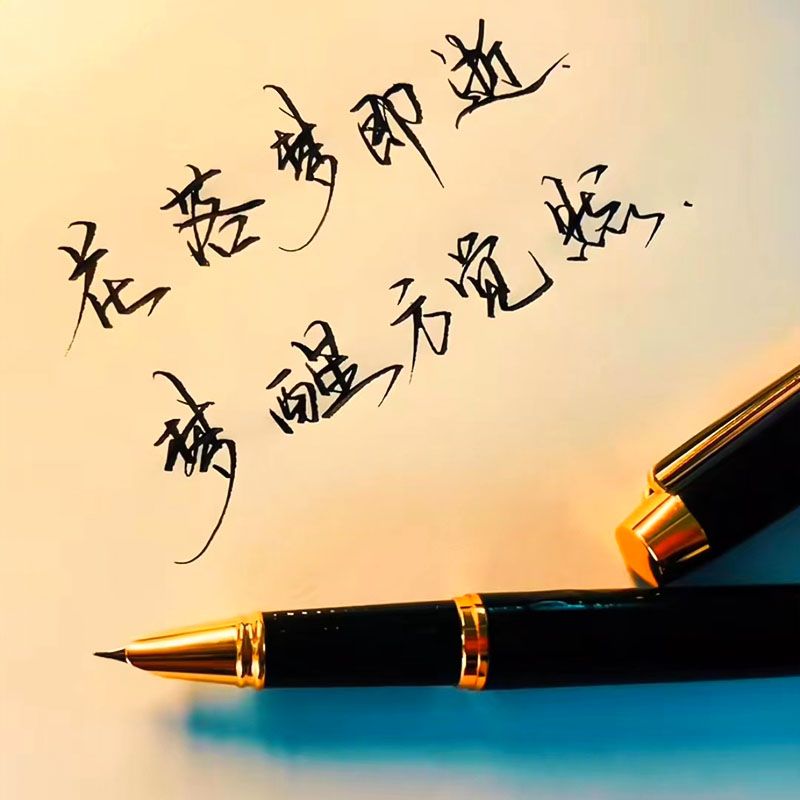 花落梦即逝
梦醒方觉